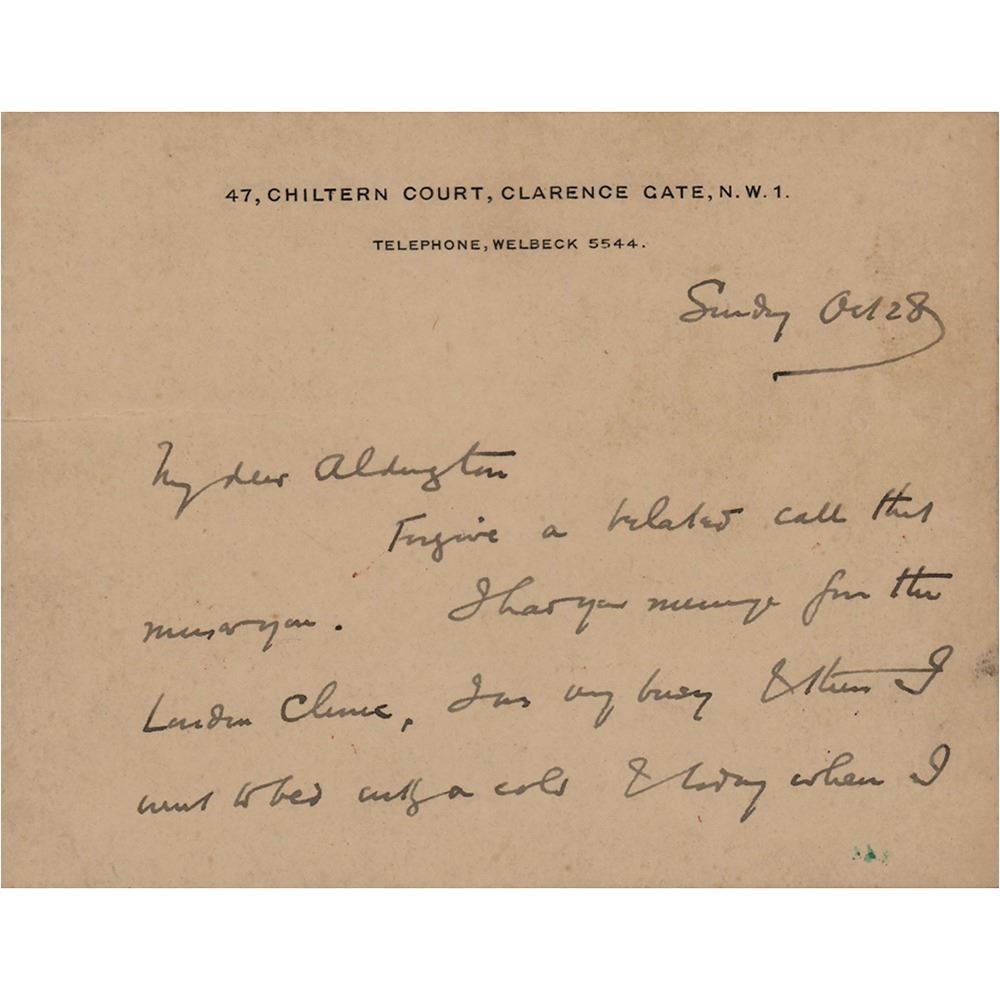 47, CHILTERN COURT, CLARENCE GATE, N.W.1.
TELEPHONE, WELBECK 5544.
Sunday Oct 28
My dear Aldington
Forgive a belated call that
misses you. I had your message from the
London Clinic, I was very busy & then I
went to bed with a cold & today when I